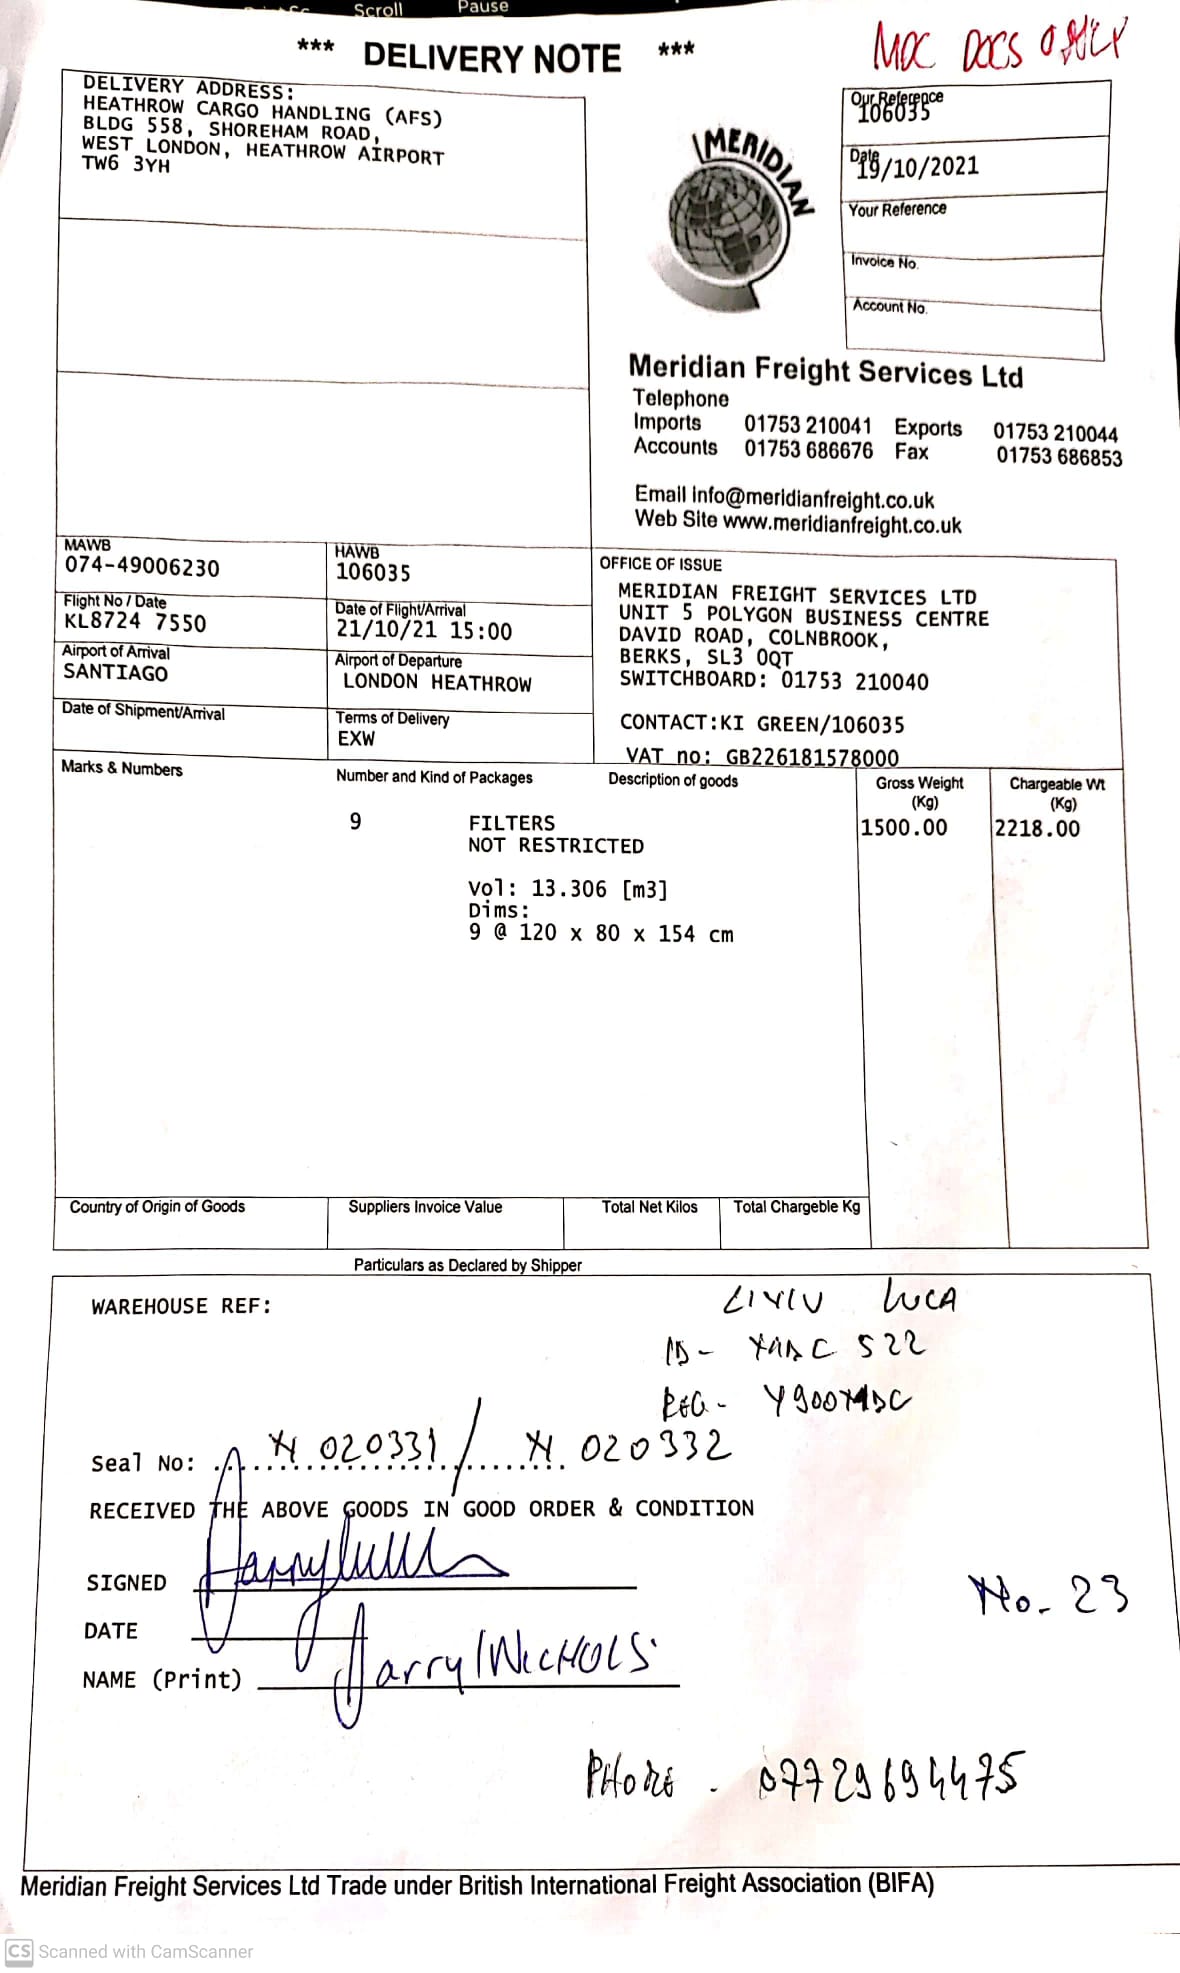 Scroll Pause
*** DELIVERY NOTE ***
MDC DOCS
DELIVERY ADDRESS:
HEATHROW CARGO HANDLING (AFS)
BLDG 558, SHOREHAM ROAD,
WEST LONDON, HEATHROW AIRPORT
TW6 3YH
MERIDIAN
Our Reference
106035
Date
19/10/2021
Your Reference
Invoice No.
Account No.
Meridian Freight Services Ltd
Telephone
Imports 01753 210041 Exports 01753 210044
Accounts 01753 686676 Fax 01753 686853
Email info@meridianfreight.co.uk
Web Site www.meridianfreight.co.uk
MAWB
074-49006230
HAWB
106035
Flight No / Date
KL8724 7550
Date of Flight/Arrival
21/10/21 15:00
Airport of Arrival
SANTIAGO
Airport of Departure
LONDON HEATHROW
Date of Shipment/Arrival
Terms of Delivery
EXW
OFFICE OF ISSUE
MERIDIAN FREIGHT SERVICES LTD
UNIT 5 POLYGON BUSINESS CENTRE
DAVID ROAD, COLNBROOK,
BERKS, SL3 0QT
SWITCHBOARD: 01753 210040
CONTACT:KI GREEN/106035
VAT no: GB226181578000
Marks & Numbers Number and Kind of Packages Description of goods Gross Weight (Kg) Chargeable Wt (Kg)
9 FILTERS 1500.00 2218.00
NOT RESTRICTED
Vol: 13.306 [m3]
Dims:
9 @ 120 x 80 x 154 cm
Country of Origin of Goods Suppliers Invoice Value Total Net Kilos Total Chargeble Kg
Particulars as Declared by Shipper
WAREHOUSE REF:
LIVIU LUCA
ID - C 522
REG - Y900MDC
Seal No: 020331 / 020332
RECEIVED THE ABOVE GOODS IN GOOD ORDER & CONDITION
SIGNED
No. 23
DATE
NAME (Print) Harry NICHOLS
PHONE - 07729694475
Meridian Freight Services Ltd Trade under British International Freight Association (BIFA)
CS Scanned with CamScanner